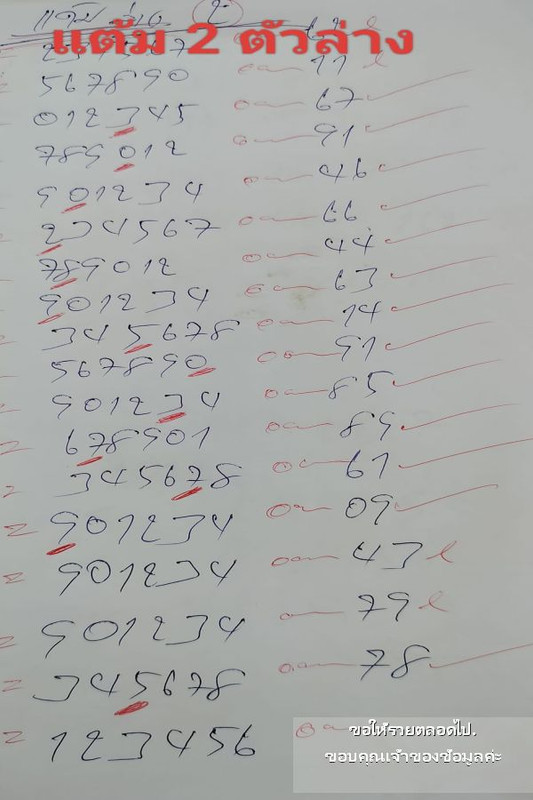 แต้ม ล่าง 2
แต้ม 2 ตัวล่าง
567890 11
012345 67
789012 91
901234 46
234567 66
789012 44
901234 63
345678 14
567890 91
901234 85
678901 89
345678 61
901234 09
901234 43
901234 79
345678 78
123456
ขอให้รวยตลอดไป.
ขอบคุณเจ้าของข้อมูลค่ะ